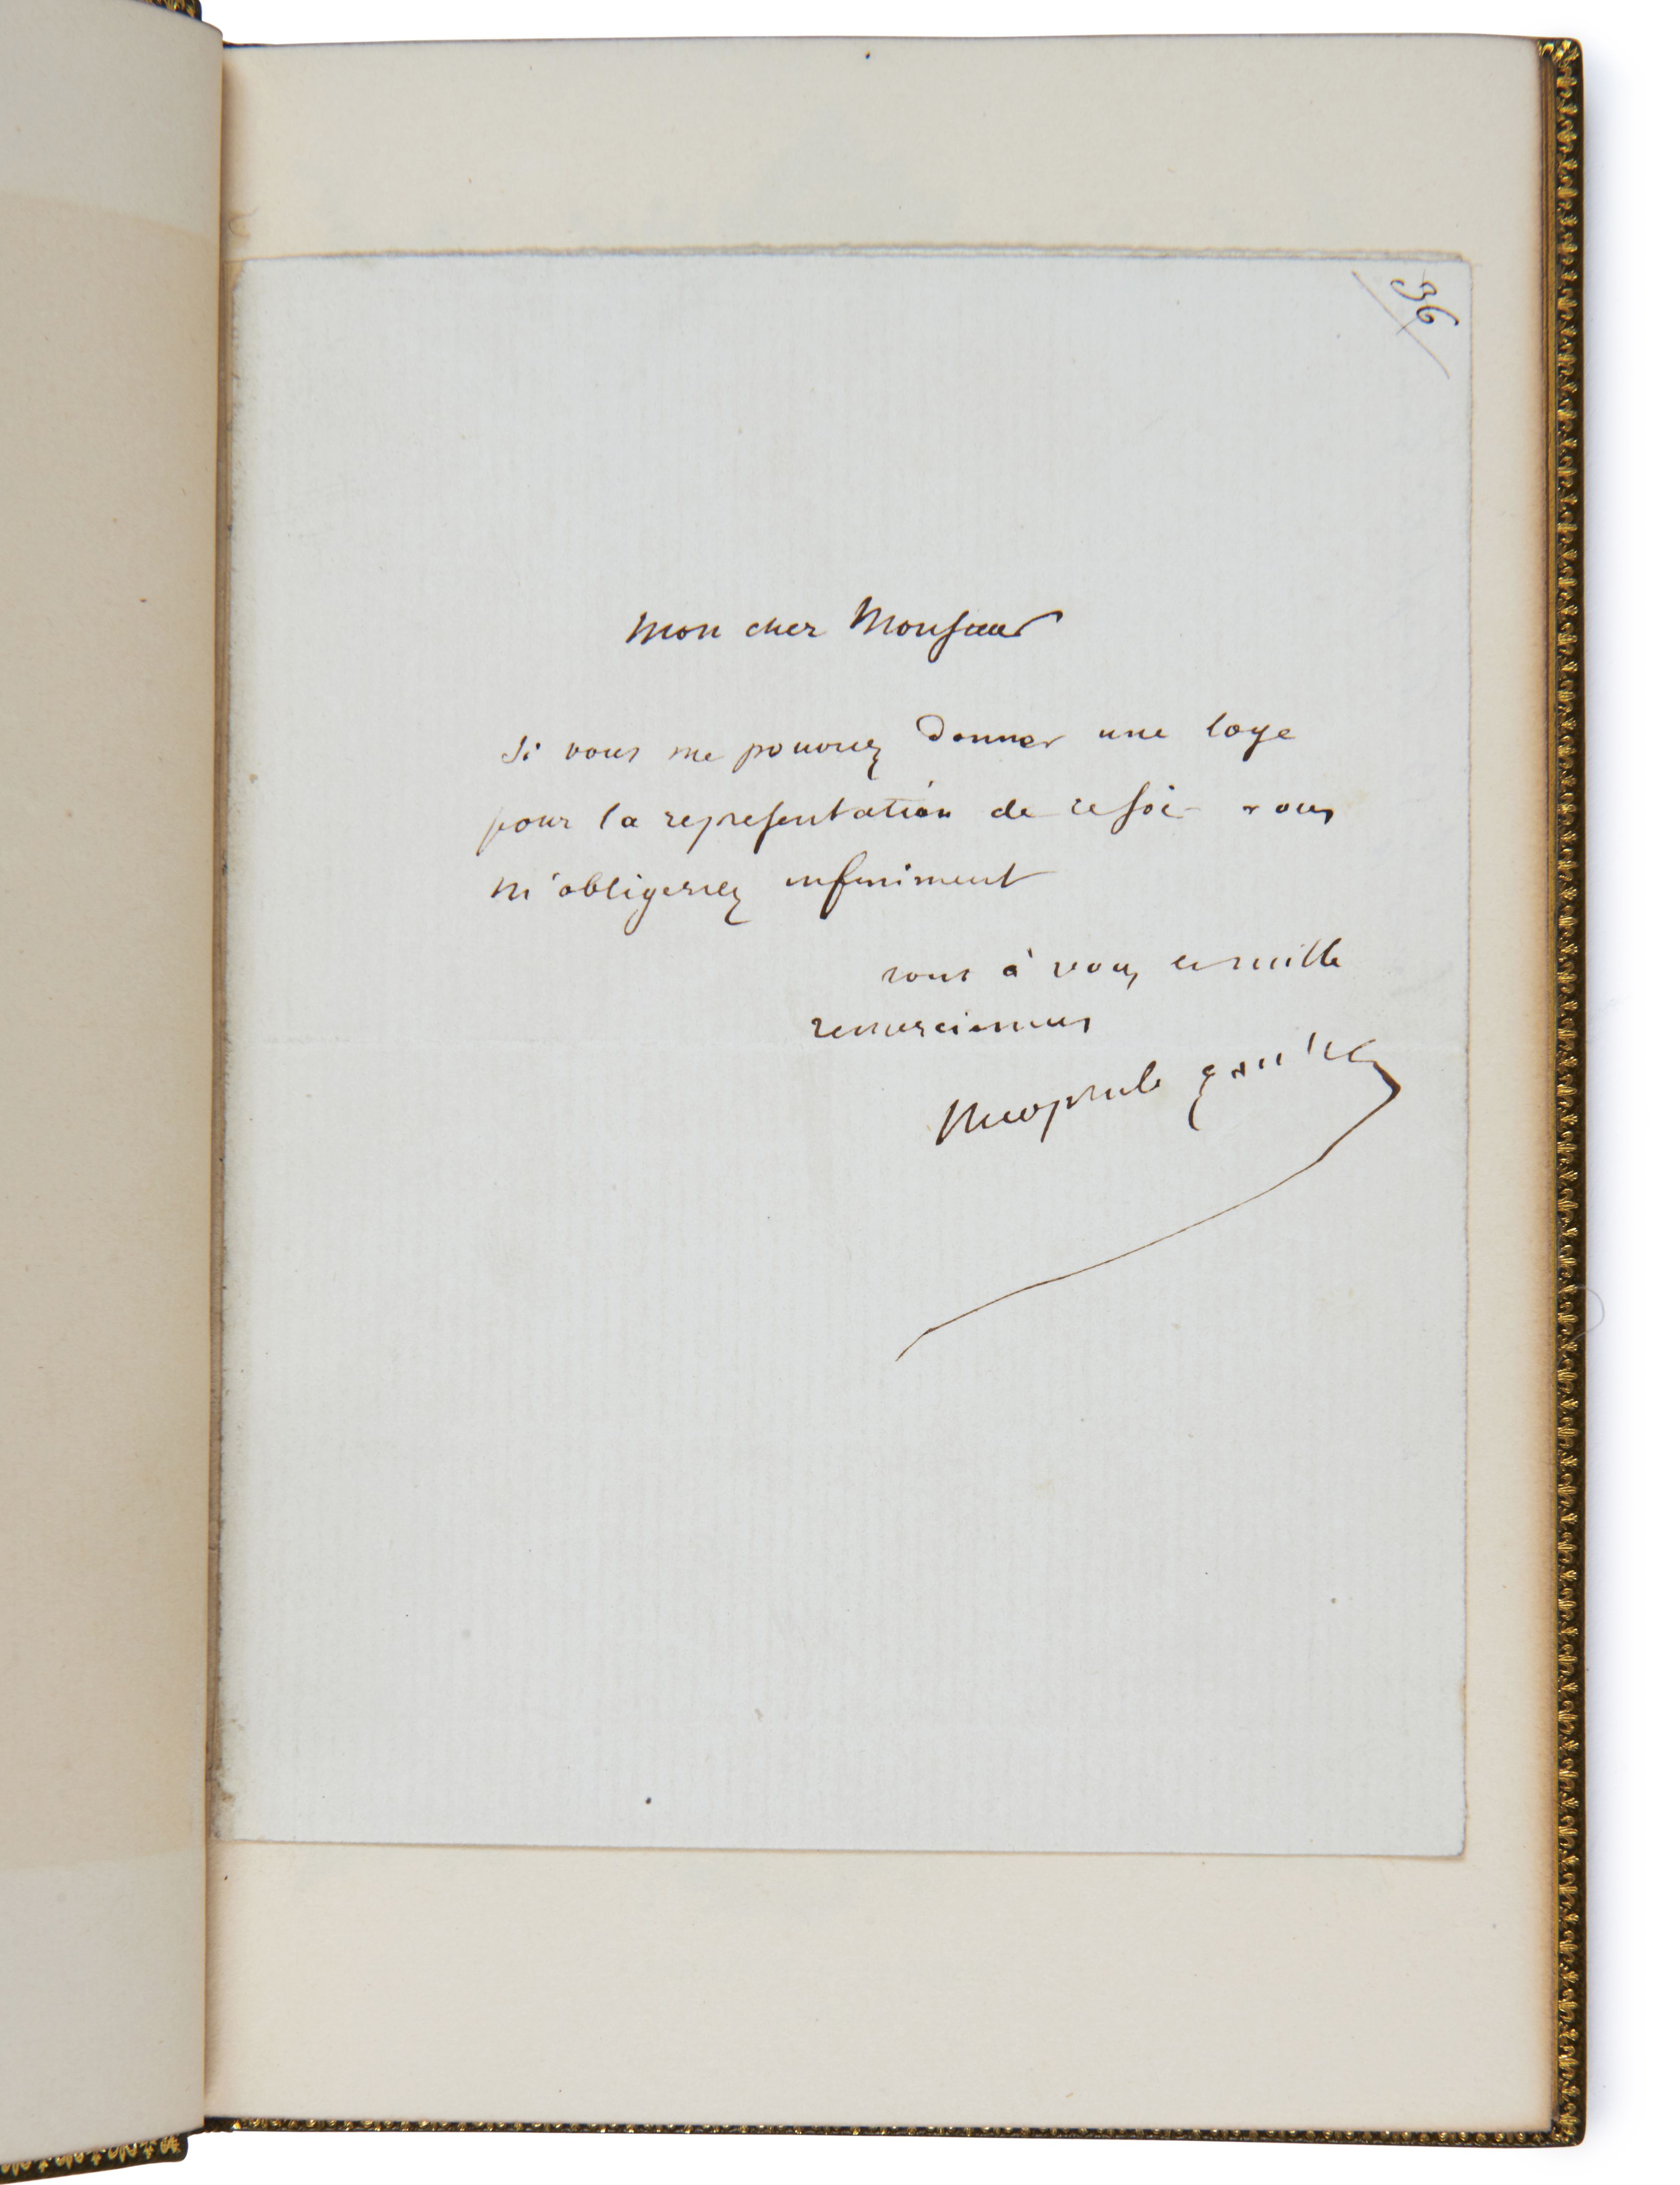 36
Mon cher Monsieur
Si vous me pouviez donner une loge
pour la representation de ce soir vous
m'obligeriez infiniment
tout à vous et mille
remerciemens
theophile gautier